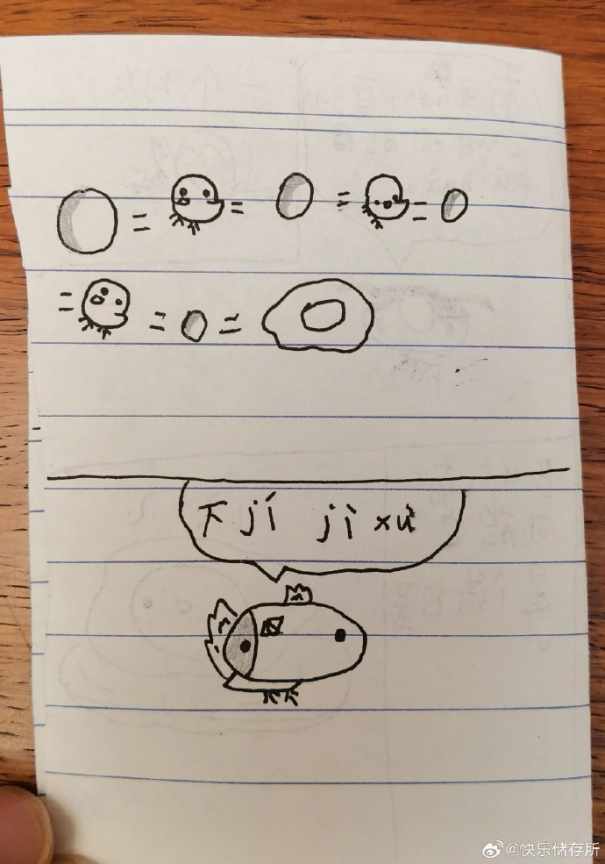 = = = =
= = =
下jí jì xù
@快乐储存所